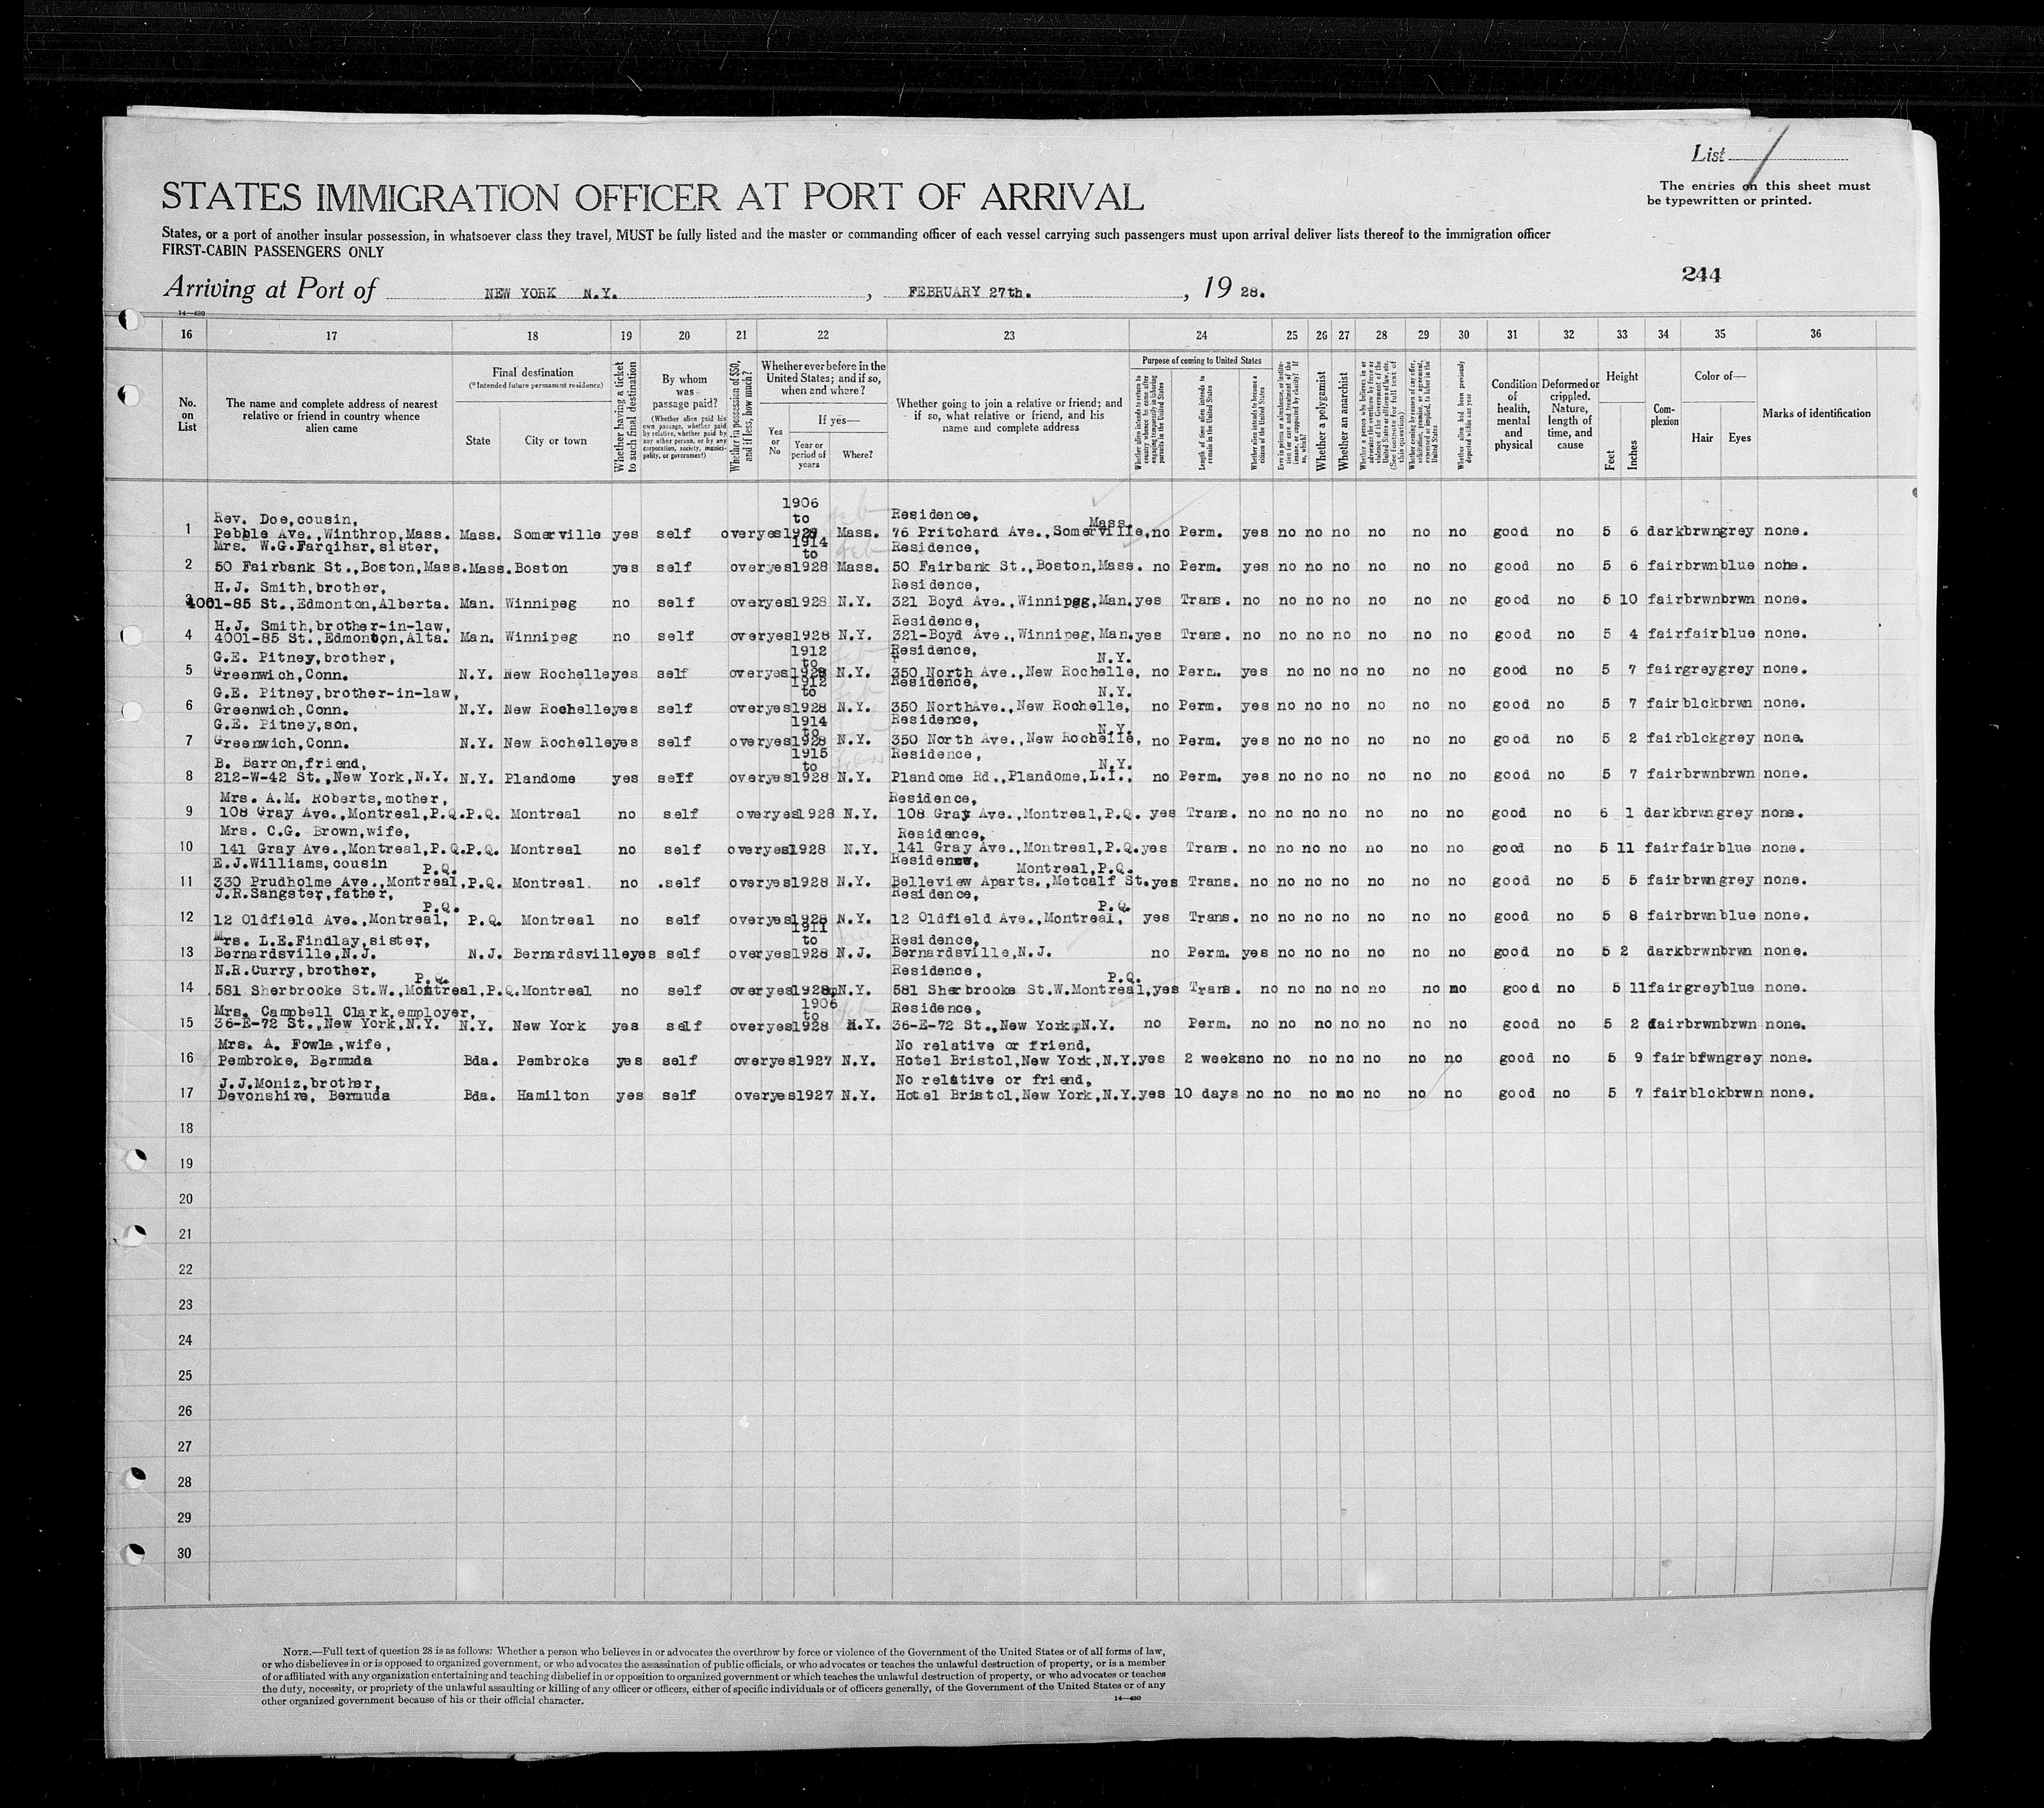 List 1
The entries on this sheet must
be typewritten or printed.
STATES IMMIGRATION OFFICER AT PORT OF ARRIVAL
States, or a port of another insular possession, in whatsoever class they travel, MUST be fully listed and the master or commanding officer of each vessel carrying such passengers must upon arrival deliver lists thereof to the immigration officer
FIRST-CABIN PASSENGERS ONLY
244
Arriving at Port of NEW YORK N.Y., FEBRUARY 27th., 1928.
14—430
16 17 18 19 20 21 22 23 24 25 26 27 28 29 30 31 32 33 34 35 36
No. on List
The name and complete address of nearest relative or friend in country whence alien came
Final destination (*Intended future permanent residence)
State
City or town
Whether having a ticket to such final destination
By whom was passage paid? (Whether alien paid his own passage, whether paid by relative, whether paid by any other person, or by any corporation, society, municipality, or government?)
Whether in possession of $50, and if less, how much?
Whether ever before in the United States; and if so, when and where?
Yes or No
If yes—
Year or period of years
Where?
Whether going to join a relative or friend; and if so, what relative or friend, and his name and complete address
Purpose of coming to United States
Whether alien intends to return to country whence he came after engaging temporarily in laboring pursuits in the United States
Length of time alien intends to remain in the United States
Whether alien intends to become a citizen of the United States
Ever in prison or almshouse, or institution for care and treatment of the insane, or supported by charity? If so, which?
Whether a polygamist
Whether an anarchist
Whether a person who believes in or advocates the overthrow by force or violence of the Government of the United States or all forms of law, etc. (See footnote for full text of this question)
Whether coming by reason of any offer, solicitation, promise, or agreement, expressed or implied, to labor in the United States
Whether alien had been previously deported within one year
Condition of health, mental and physical
Deformed or crippled. Nature, length of time, and cause
Height
Feet
Inches
Complexion
Color of—
Hair
Eyes
Marks of identification
1 Rev. Doe,cousin, Pebble Ave.,Winthrop,Mass. Mass. Somerville yes self over yes 1906 to 1928 Mass. Residence, 76 Pritchard Ave.,Somerville, Mass. no Perm. yes no no no no no no good no 5 6 dark brwn grey none.
2 Mrs. W.G.Farqihar,sister, 50 Fairbank St.,Boston,Mass. Mass. Boston yes self over yes 1914 to 1928 Mass. Residence, 50 Fairbank St.,Boston,Mass. no Perm. yes no no no no no no good no 5 6 fair brwn blue none.
3 H.J. Smith,brother, 4001-85 St.,Edmonton,Alberta. Man. Winnipeg no self over yes 1928 N.Y. Residence, 321 Boyd Ave.,Winnipeg,Man. yes Trans. no no no no no no no good no 5 10 fair brwn brwn none.
4 H.J. Smith,brother-in-law, 4001-85 St.,Edmonton,Alta. Man. Winnipeg no self over yes 1928 N.Y. Residence, 321-Boyd Ave.,Winnipeg,Man. yes Trans. no no no no no no no good no 5 4 fair fair blue none.
5 G.E. Pitney,brother, Greenwich,Conn. N.Y. New Rochelle yes self over yes 1912 to 1928 N.Y. Residence, 350 North Ave.,New Rochelle, N.Y. no Perm. yes no no no no no no good no 5 7 fair grey grey none.
6 G.E. Pitney,brother-in-law, Greenwich,Conn. N.Y. New Rochelle yes self over yes 1912 to 1928 N.Y. Residence, 350 NorthAve.,New Rochelle, N.Y. no Perm. yes no no no no no no good no 5 7 fair blck brwn none.
7 G.E. Pitney,son, Greenwich,Conn. N.Y. New Rochelle yes self over yes 1914 to 1928 N.Y. Residence, 350 North Ave.,New Rochelle, N.Y. no Perm. yes no no no no no no good no 5 2 fair blck grey none.
8 B. Barron,friend, 212-W-42 St.,New York,N.Y. N.Y. Plandome yes self over yes 1915 to 1928 N.Y. Residence, Plandome Rd.,Plandome,L.I., N.Y. no Perm. yes no no no no no no good no 5 7 fair brwn brwn none.
9 Mrs. A.M. Roberts,mother, 108 Gray Ave.,Montreal,P.Q. P.Q. Montreal no self over yes 1928 N.Y. Residence, 108 Gray Ave.,Montreal,P.Q. yes Trans. no no no no no no no good no 6 1 dark brwn grey none.
10 Mrs. C.G. Brown,wife, 141 Gray Ave.,Montreal,P.Q. P.Q. Montreal no self over yes 1928 N.Y. Residence, 141 Gray Ave.,Montreal,P.Q. yes Trans. no no no no no no no good no 5 11 fair fair blue none.
11 E.J.Williams,cousin 330 Prudholme Ave.,Montreal, P.Q. P.Q. Montreal. no .self over yes 1928 N.Y. Residence, Belleview Aparts.,Metcalf St. Montreal,P.Q. yes Trans. no no no no no no no good no 5 5 fair brwn grey none.
12 J.R.Sangster,father, 12 Oldfield Ave.,Montreal, P.Q. P.Q. Montreal no self over yes 1928 N.Y. Residence, 12 Oldfield Ave.,Montreal, P.Q. yes Trans. no no no no no no no good no 5 8 fair brwn blue none.
13 Mrs. L.E.Findlay,sister, Bernardsville,N.J. N.J. Bernardsville yes self over yes 1911 to 1928 N.J. Residence, Bernardsville,N.J. no Perm. yes no no no no no no good no 5 2 dark brwn brwn none.
14 N.R.Curry,brother, 581 Sherbrooke St.W.,Montreal,P.Q. P.Q. Montreal no self over yes 1928 N.Y. Residence, 581 Sherbrooke St.W.Montreal, P.Q. yes Trans. no no no no no no no good no 5 11 fair grey blue none.
15 Mrs. Campbell Clark,employer, 36-E-72 St.,New York,N.Y. N.Y. New York yes self over yes 1906 to 1928 N.Y. Residence, 36-E-72 St.,New York,N.Y. no Perm. no no no no no no no good no 5 2 fair brwn brwn none.
16 Mrs. A. Fowle,wife, Pembroke, Bermuda Bda. Pembroke yes self over yes 1927 N.Y. No relative or friend, Hotel Bristol,New York,N.Y. yes 2 weeks no no no no no no no good no 5 9 fair brwn grey none.
17 J.J.Moniz,brother, Devonshire, Bermuda Bda. Hamilton yes self over yes 1927 N.Y. No relative or friend, Hotel Bristol,New York,N.Y. yes 10 days no no no no no no no good no 5 7 fair blck brwn none.
18
19
20
21
22
23
24
25
26
27
28
29
30
NOTE.—Full text of question 28 is as follows: Whether a person who believes in or advocates the overthrow by force or violence of the Government of the United States or of all forms of law,
or who disbelieves in or is opposed to organized government, or who advocates the assassination of public officials, or who advocates or teaches the unlawful destruction of property, or is a member
of or affiliated with any organization entertaining and teaching disbelief in or opposition to organized government or which teaches the unlawful destruction of property, or who advocates or teaches
the duty, necessity, or propriety of the unlawful assaulting or killing of any officer or officers, either of specific individuals or of officers generally, of the Government of the United States or of any
other organized government because of his or their official character.
14—430